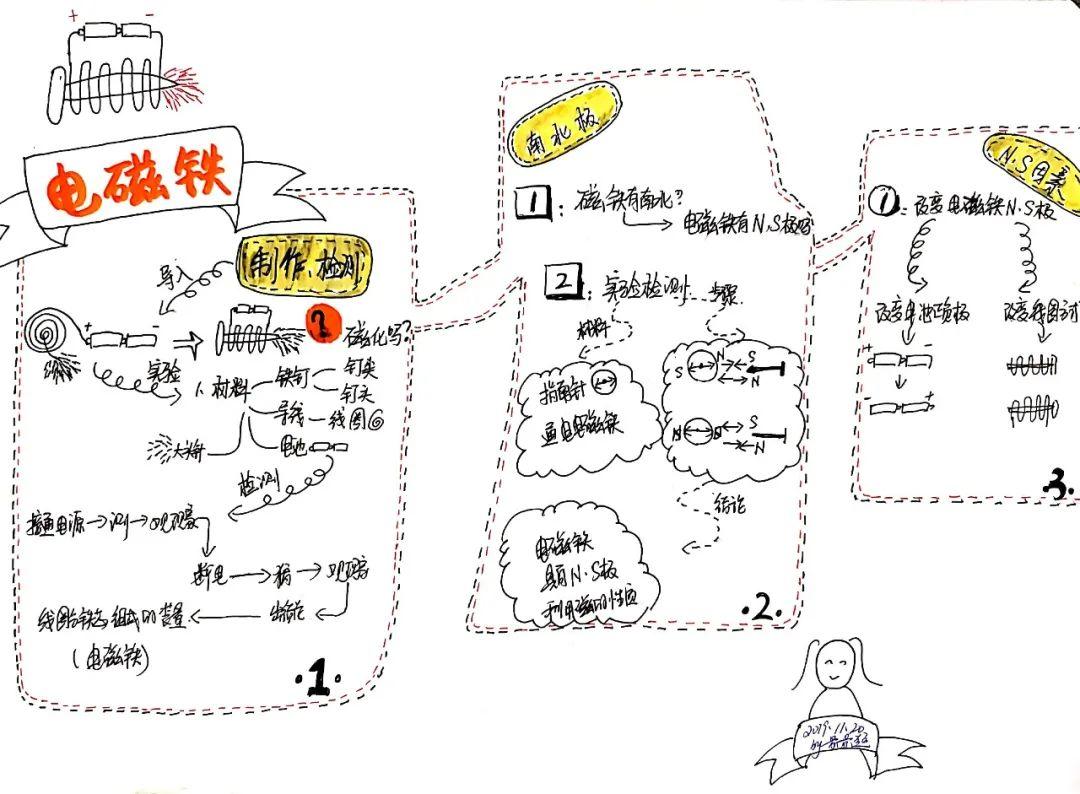 + -
电磁铁
制作、检测
导入
+ -
实验
?
磁化吗?
1、材料
铁钉
钉尖
钉头
导线
线圈
电池
大头针
检测
接通电源
断电
线圈和铁钉组成的装置
(电磁铁)
·1·
南北极
1:磁铁有南北?
电磁铁有N、S极吗
2:实验检测
步骤
材料
指南针
通电电磁铁
S N S
N
N S S
N
结论
电磁铁
具有N·S极
利用磁的性质
·2·
N、S因素
①:改变电磁铁N、S极
改变电池
改变线圈
+ -
- +
3.
2019.11.20
by